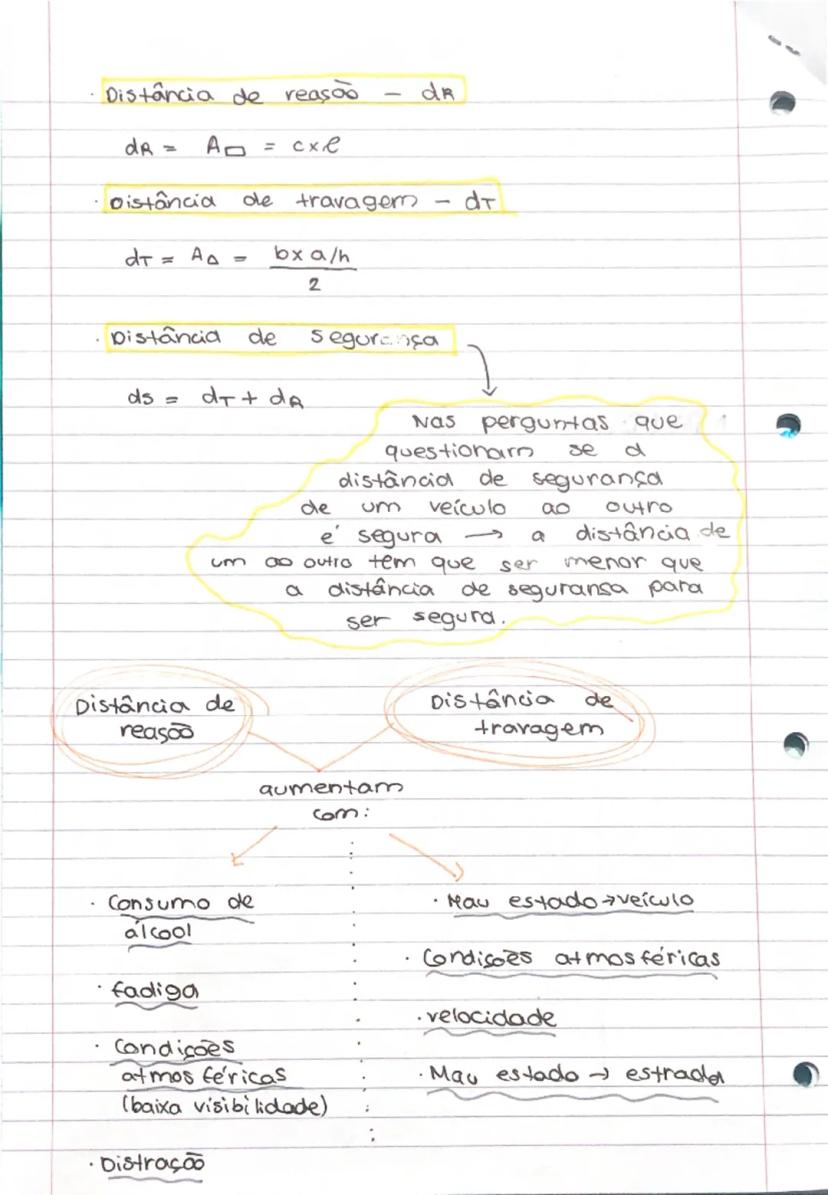 · Distância de reação – dR
dR = A▭ = c×l
· Distância de travagem – dT
dT = A△ = b×a/h
2
· Distância de segurança
ds = dT + dR
Nas perguntas que
questionam se a
distância de segurança
de um veículo ao outro
é segura → a distância de
um ao outro tem que ser menor que
a distância de seguransa para
ser segura.
Distância de
reação
Distância de
travagem
aumentam
com:
· Consumo de
álcool
· fadiga
· Condições
atmosféricas
(baixa visibilidade)
· Distração
· Mau estado → veículo
· Condições atmosféricas
· velocidade
· Mau estado → estrada